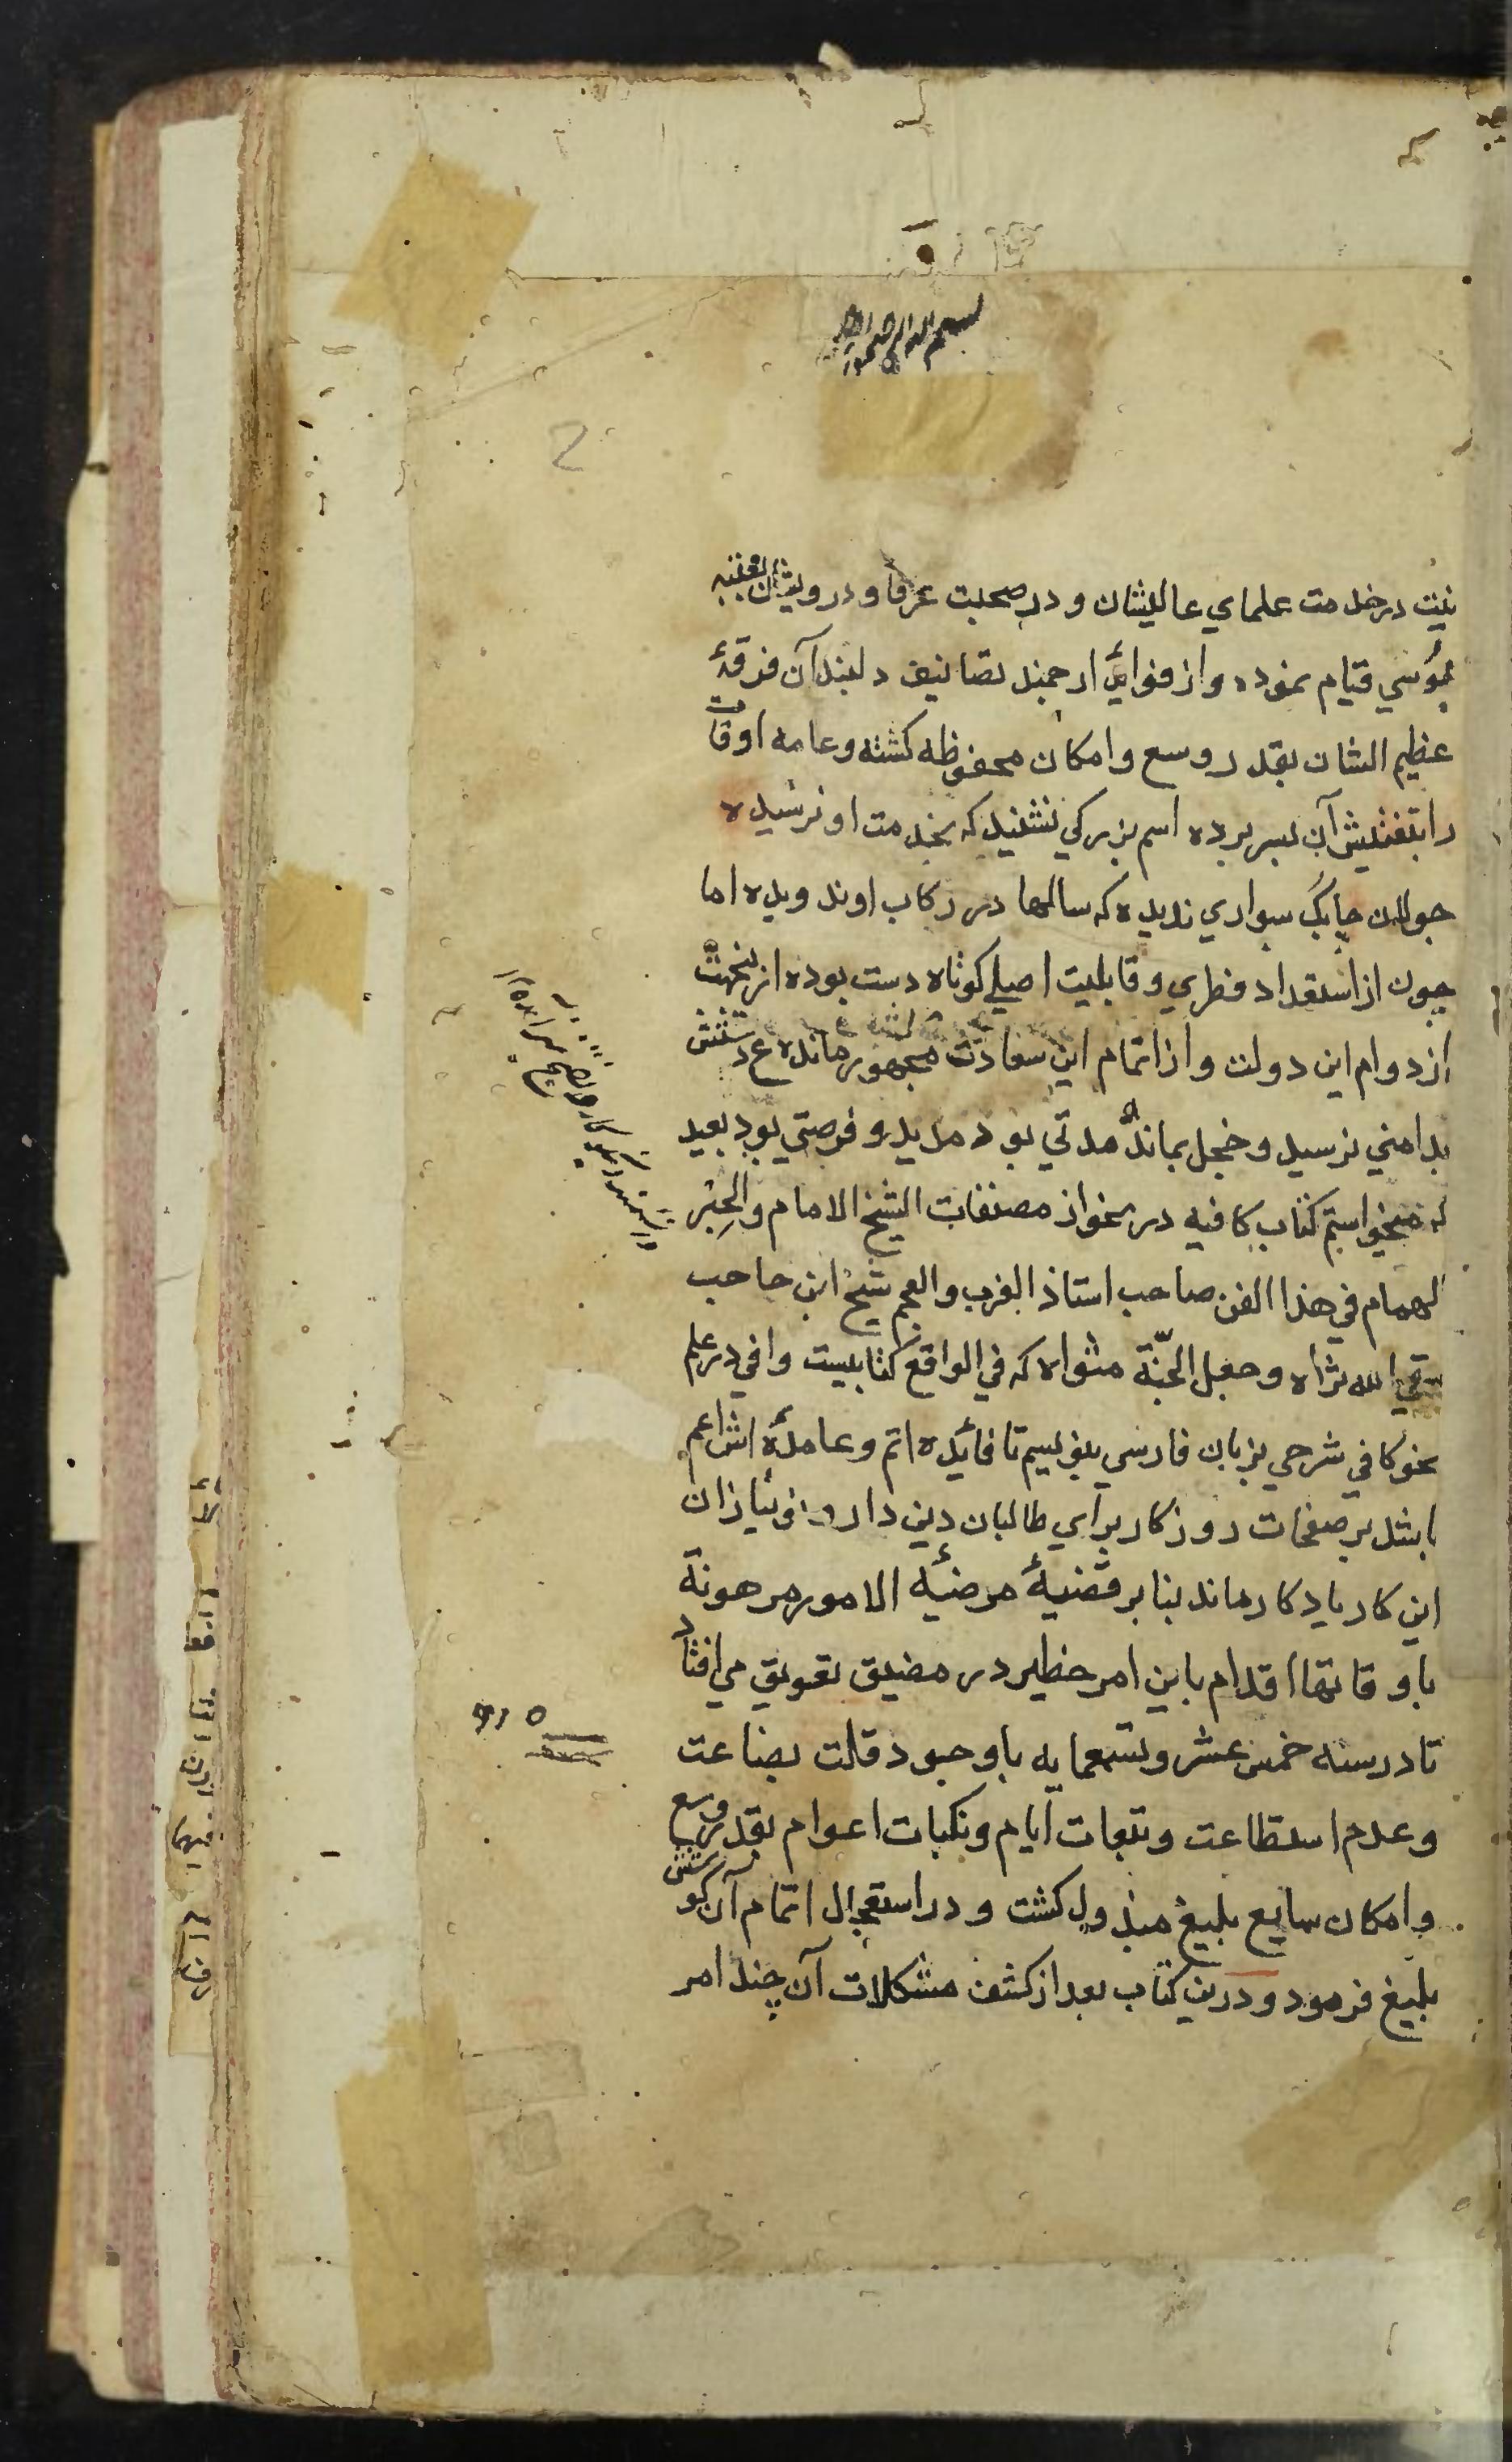 بسم الله الرحمن الرحيم
نيت در خدمت علماي عاليشان و در صحبت عرفا و درويشان بعتبه
بوسي قيام نموده و از فوائد ارجمند تصانيف دلبند آن فرقهٔ
عظيم الشان بقدر وسع و امكان محفوظ كشته و عامه اوقات
را بتفتيش آن بسر برده اسم بزركي نشنيد كه بخدمت او نرسيده
چابك سواري نديده كه سالها در ركاب او ندويده اما
چون از استعداد فطري و قابليت اصلي كوتاه دست بوده ازينجهت
از دوام اين دولت و از اتمام اين سعادت مهجور مانده ع دستش
بدامني نرسيد و خجل بماند مدتي بود مديد و فرصتي بود بعيد
كه ميخواستم كتاب كافيه در نحو از مصنفات الشيخ الامام والحِبْر
الهمام في هذا الفن صاحب استاذ العرب والعجم شيخ ابن حاجب
سقي الله ثراه و جعل الجنّة مثواه كه في الواقع كتابيست وافي در علم
نحو كافي شرحي بزبان فارسي بنويسيم تا فائده اتم و عائدهٔ اش اعم
باشد بر صفحات روزكار براي طالبان دين دار و
اين كار يادكار ماند بنابر قضيهٔ مرضيه الامور مرهونة
باوقاتها اقدام باين امر خطير در مضيق تعويق مي افتاد
تا در سنه خمس عشر و تسعمايه با وجود قلت بضاعت
و عدم استطاعت و تبعات ايام و نكبات اعوام بقدر وسع
و امكان سايع بليغ مبذول كشت و در استعجال اتمام آن كوشش
بليغ فرمود و درين كتاب بعد از كشف مشكلات آن چند امر
٩١٥
2